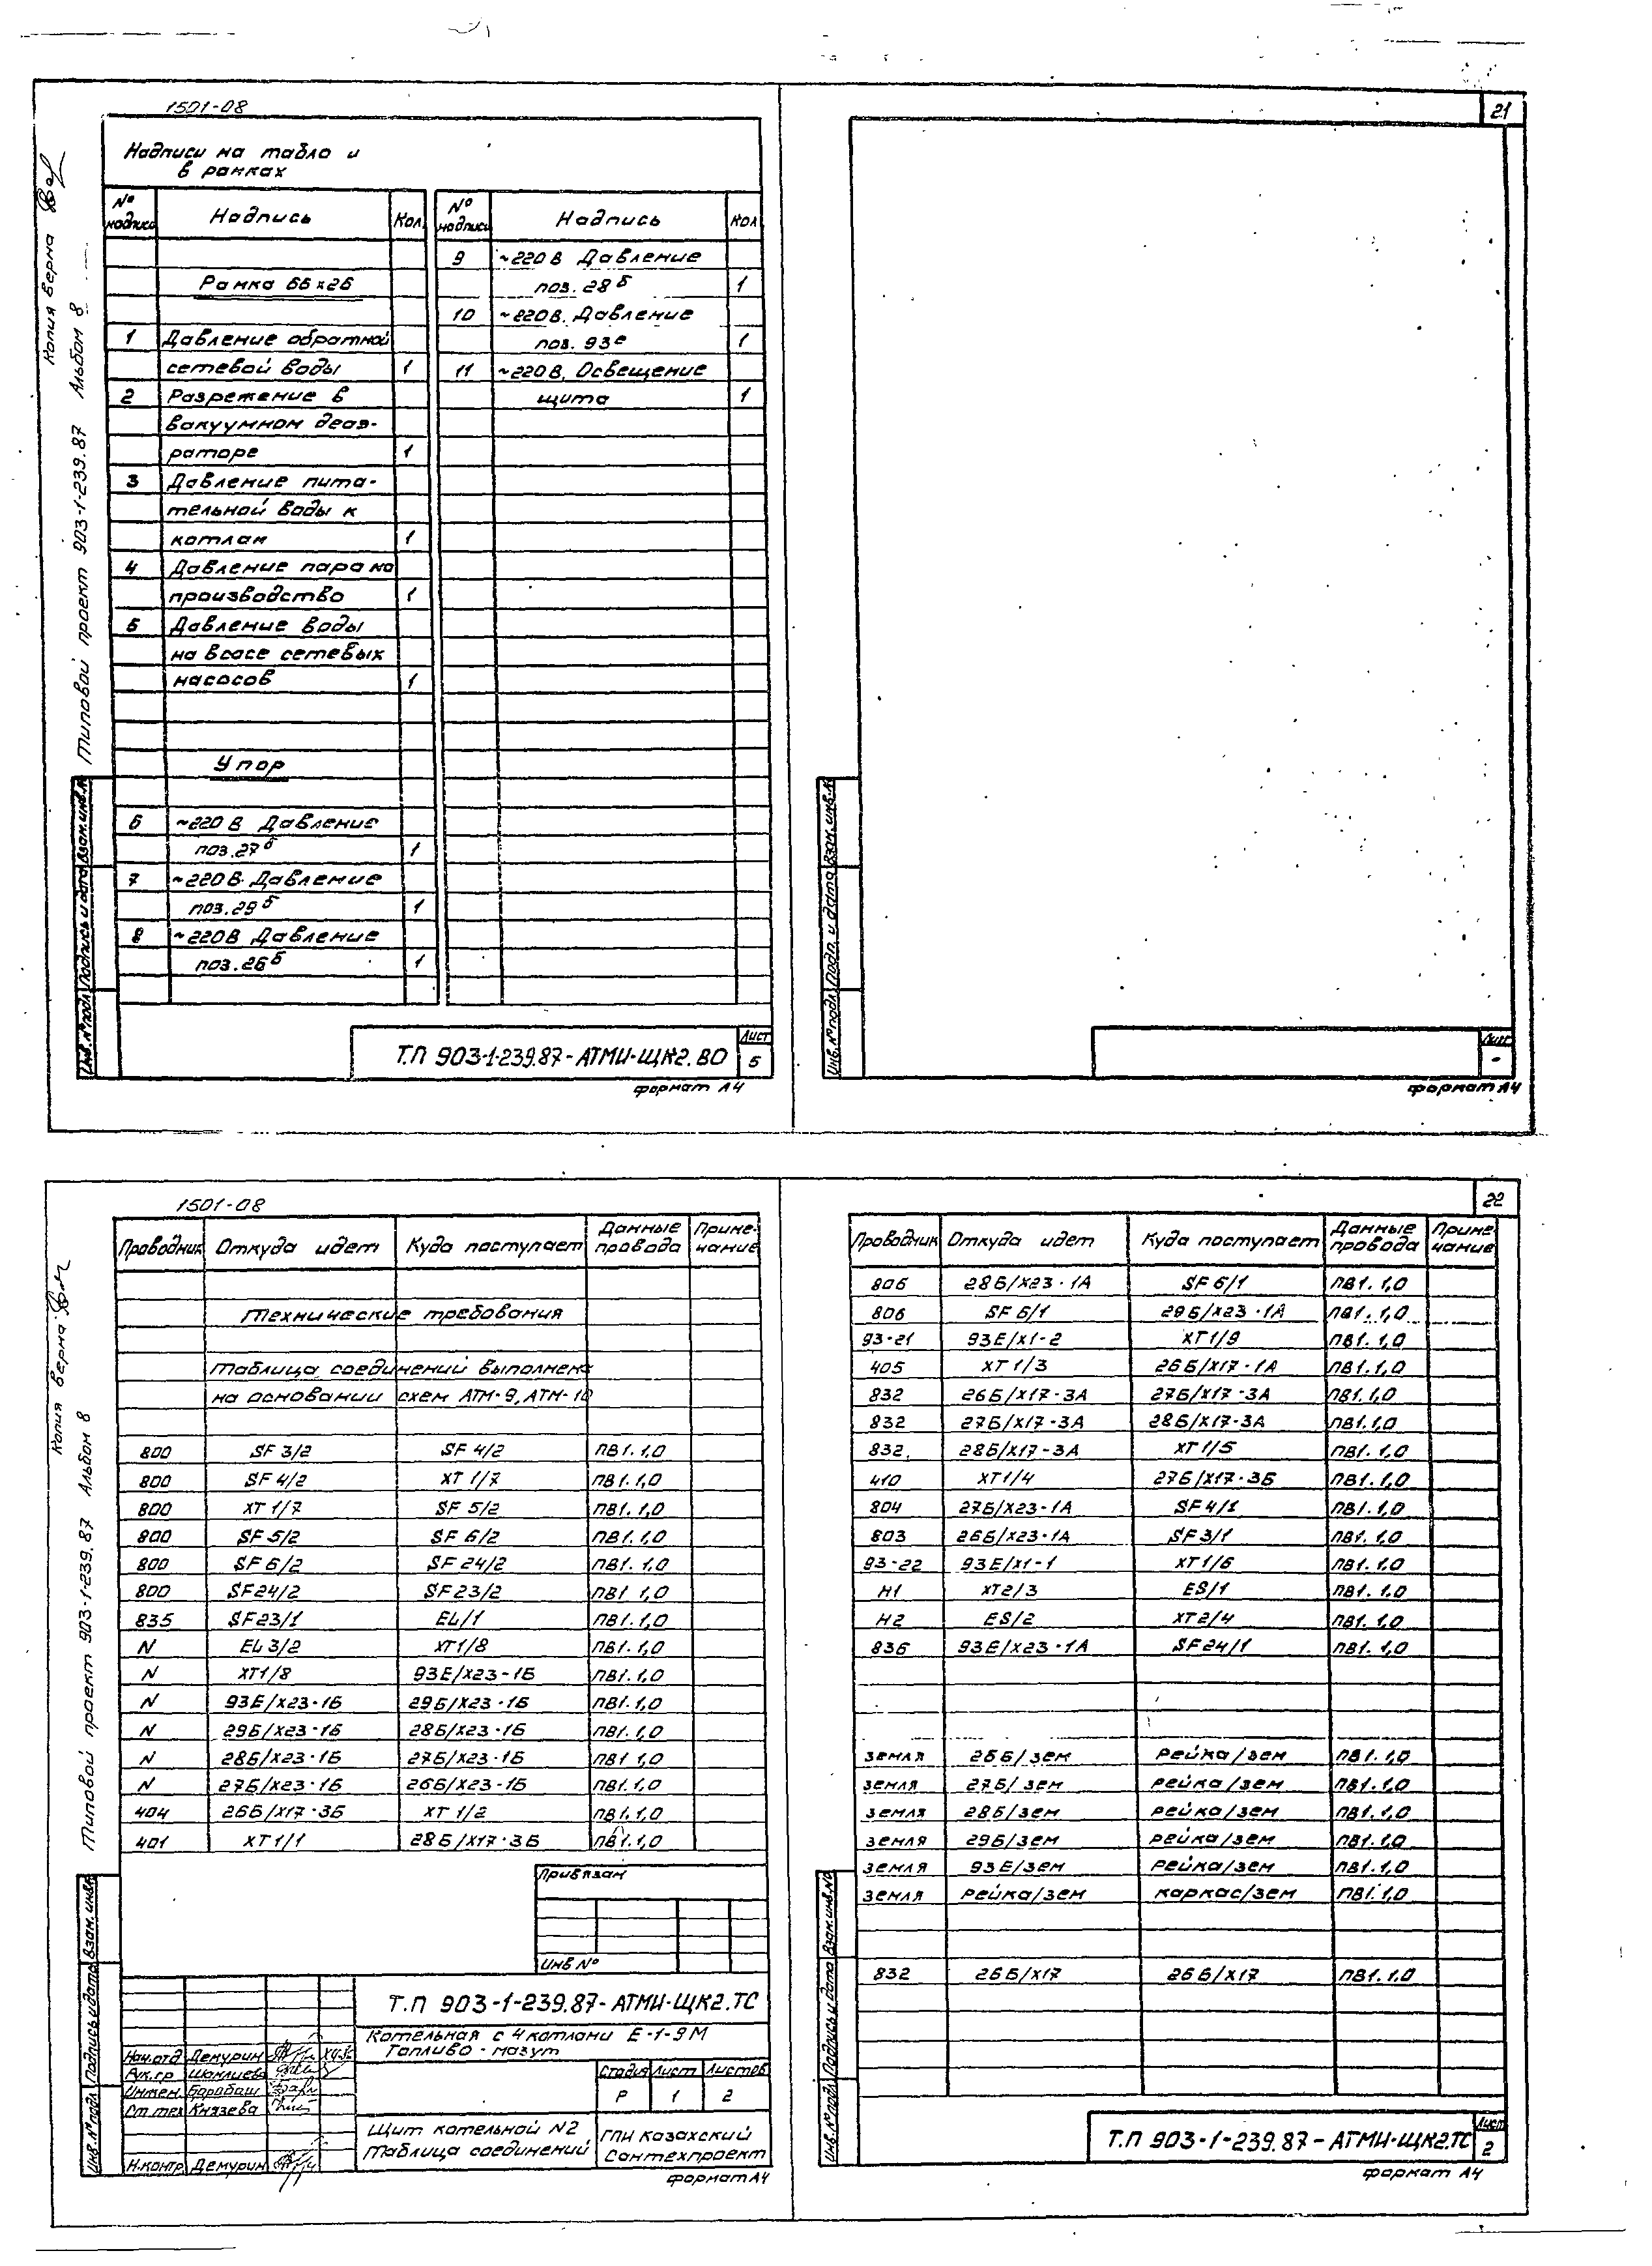 1501-08
21
Копия верна
Типовой проект 903-1-239.87 Альбом 8
Надписи на табло и
в рамках
№ надписи Надпись Кол. № надписи Надпись Кол
Рамка 66х26
1 Давление обратной
сетевой воды 1
2 Разрежение в
вакуумном деаэ-
раторе 1
3 Давление пита-
тельной воды к
котлам 1
4 Давление пара на
производство 1
5 Давление воды
на всасе сетевых
насосов 1
Упор
6 ~220 В Давление
поз. 27б 1
7 ~220 В. Давление
поз. 29б 1
8 ~220 В Давление
поз. 26б 1
9 ~220 В Давление
поз. 28б 1
10 ~220 В. Давление
поз. 93е 1
11 ~220 В. Освещение
щита 1
Инв. № подл. Подпись и дата Взам. инв. №
Т.П 903-1-239.87-АТМИ-ЩК2.ВО
Лист
5
формат А4
Инв. № подл. Подп. и дата Взам. инв. №
Лист
-
формат А4
1501-08
22
Копия верна
Типовой проект 903-1-239.87 Альбом 8
Проводник Откуда идет Куда поступает Данные провода Приме-чание
Технические требования
Таблица соединений выполнена
на основании схем АТМ-9, АТМ-10
800 SF 3/2 SF 4/2 ПВ1. 1,0
800 SF 4/2 XT 1/7 ПВ1. 1,0
800 XT 1/7 SF 5/2 ПВ1. 1,0
800 SF 5/2 SF 6/2 ПВ1. 1,0
800 SF 6/2 SF 24/2 ПВ1. 1,0
800 SF24/2 SF23/2 ПВ1 1,0
835 SF23/1 EL/1 ПВ1. 1,0
N EL 3/2 XT1/8 ПВ1. 1,0
N XT1/8 93Е/X23-1Б ПВ1. 1,0
N 93Е/X23-1Б 29Б/X23-1Б ПВ1. 1,0
N 29Б/X23-1Б 28Б/X23-1Б ПВ1. 1,0
N 28Б/X23-1Б 27Б/X23-1Б ПВ1 1,0
N 27Б/X23-1Б 26Б/X23-1Б ПВ1. 1,0
404 26Б/X17-3Б XT 1/2 ПВ1. 1,0
401 XT1/1 28Б/X17-3Б ПВ1. 1,0
Привязан
Инв №
Т.П 903-1-239.87-АТМИ-ЩК2.ТС
Котельная с 4 котлами Е-1-9М
Топливо - мазут
Нач.отд Демурин
Рук.гр
Инжен. Барабаш
Ст.тех Князева
Н.контр Демурин
Стадия Лист Листов
Р 1 2
Щит котельной N2
Таблица соединений
ГПИ Казахский
Сантехпроект
Инв. № подл. Подпись и дата Взам. инв. №
формат А4
Проводник Откуда идет Куда поступает Данные провода Приме-чание
806 28Б/X23-1А SF 6/1 ПВ1. 1,0
806 SF 6/1 29Б/X23-1А ПВ1. 1,0
93-21 93Е/X1-2 XT1/9 ПВ1. 1,0
405 XT 1/3 26Б/X17-1А ПВ1. 1,0
832 26Б/X17-3А 27Б/X17-3А ПВ1. 1,0
832 27Б/X17-3А 28Б/X17-3А ПВ1. 1,0
832 28Б/X17-3А XT 1/5 ПВ1. 1,0
410 XT1/4 27Б/X17-3Б ПВ1. 1,0
804 27Б/X23-1А SF4/1 ПВ1. 1,0
803 26Б/X23-1А SF3/1 ПВ1. 1,0
93-22 93Е/X1-1 XT1/6 ПВ1. 1,0
Н1 XT2/3 ES/1 ПВ1. 1,0
Н2 ES/2 XT2/4 ПВ1. 1,0
836 93Е/X23-1А SF24/1 ПВ1. 1,0
земля 26Б/зем рейка/зем ПВ1. 1,0
земля 27Б/зем рейка/зем ПВ1. 1,0
земля 28Б/зем рейка/зем ПВ1. 1,0
земля 29Б/зем рейка/зем ПВ1. 1,0
земля 93Е/зем рейка/зем ПВ1. 1,0
земля рейка/зем каркас/зем ПВ1. 1,0
832 26Б/X17 26Б/X17 ПВ1. 1,0
Инв. № подл. Подпись и дата Взам. инв. №
Т.П 903-1-239.87-АТМИ-ЩК2.ТС
Лист
2
формат А4